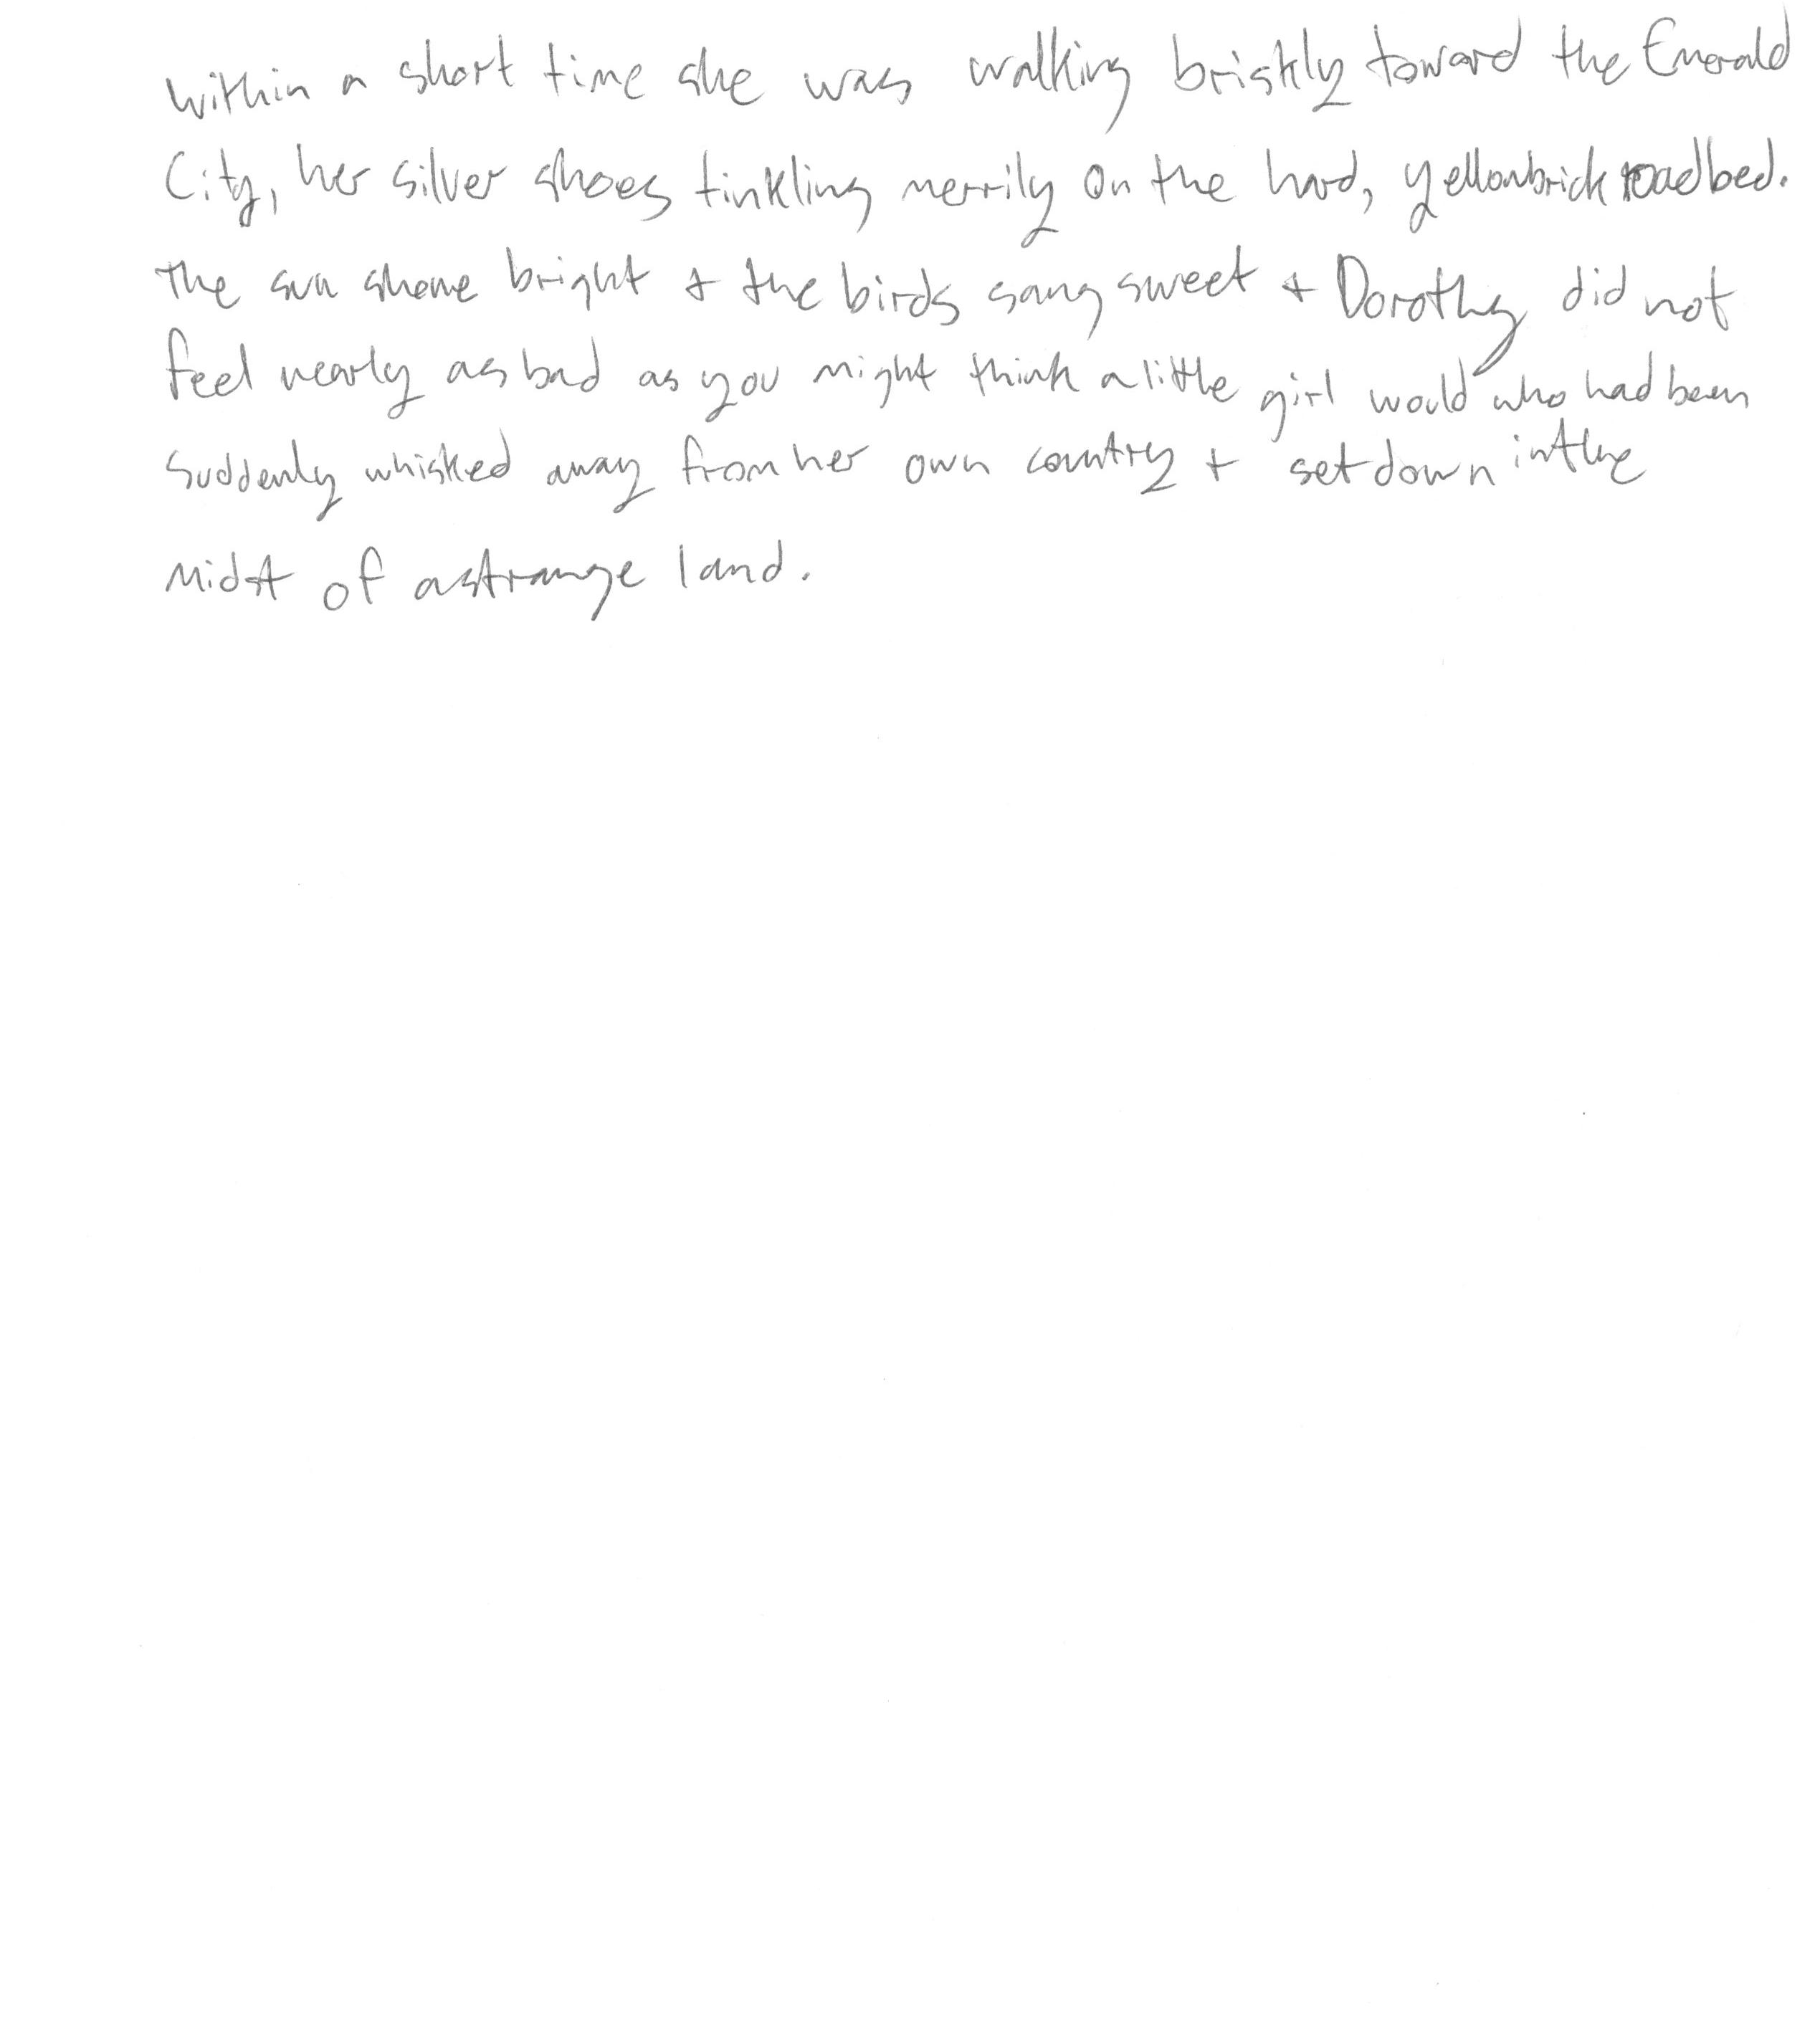 within a short time she was walking briskly toward the Emerald
City, her silver shoes tinkling merrily on the hard, yellowbrick roadbed.
The sun shone bright + the birds sang sweet + Dorothy did not
feel nearly as bad as you might think a little girl would who had been
suddenly whisked away from her own country + set down in the
midst of a strange land.